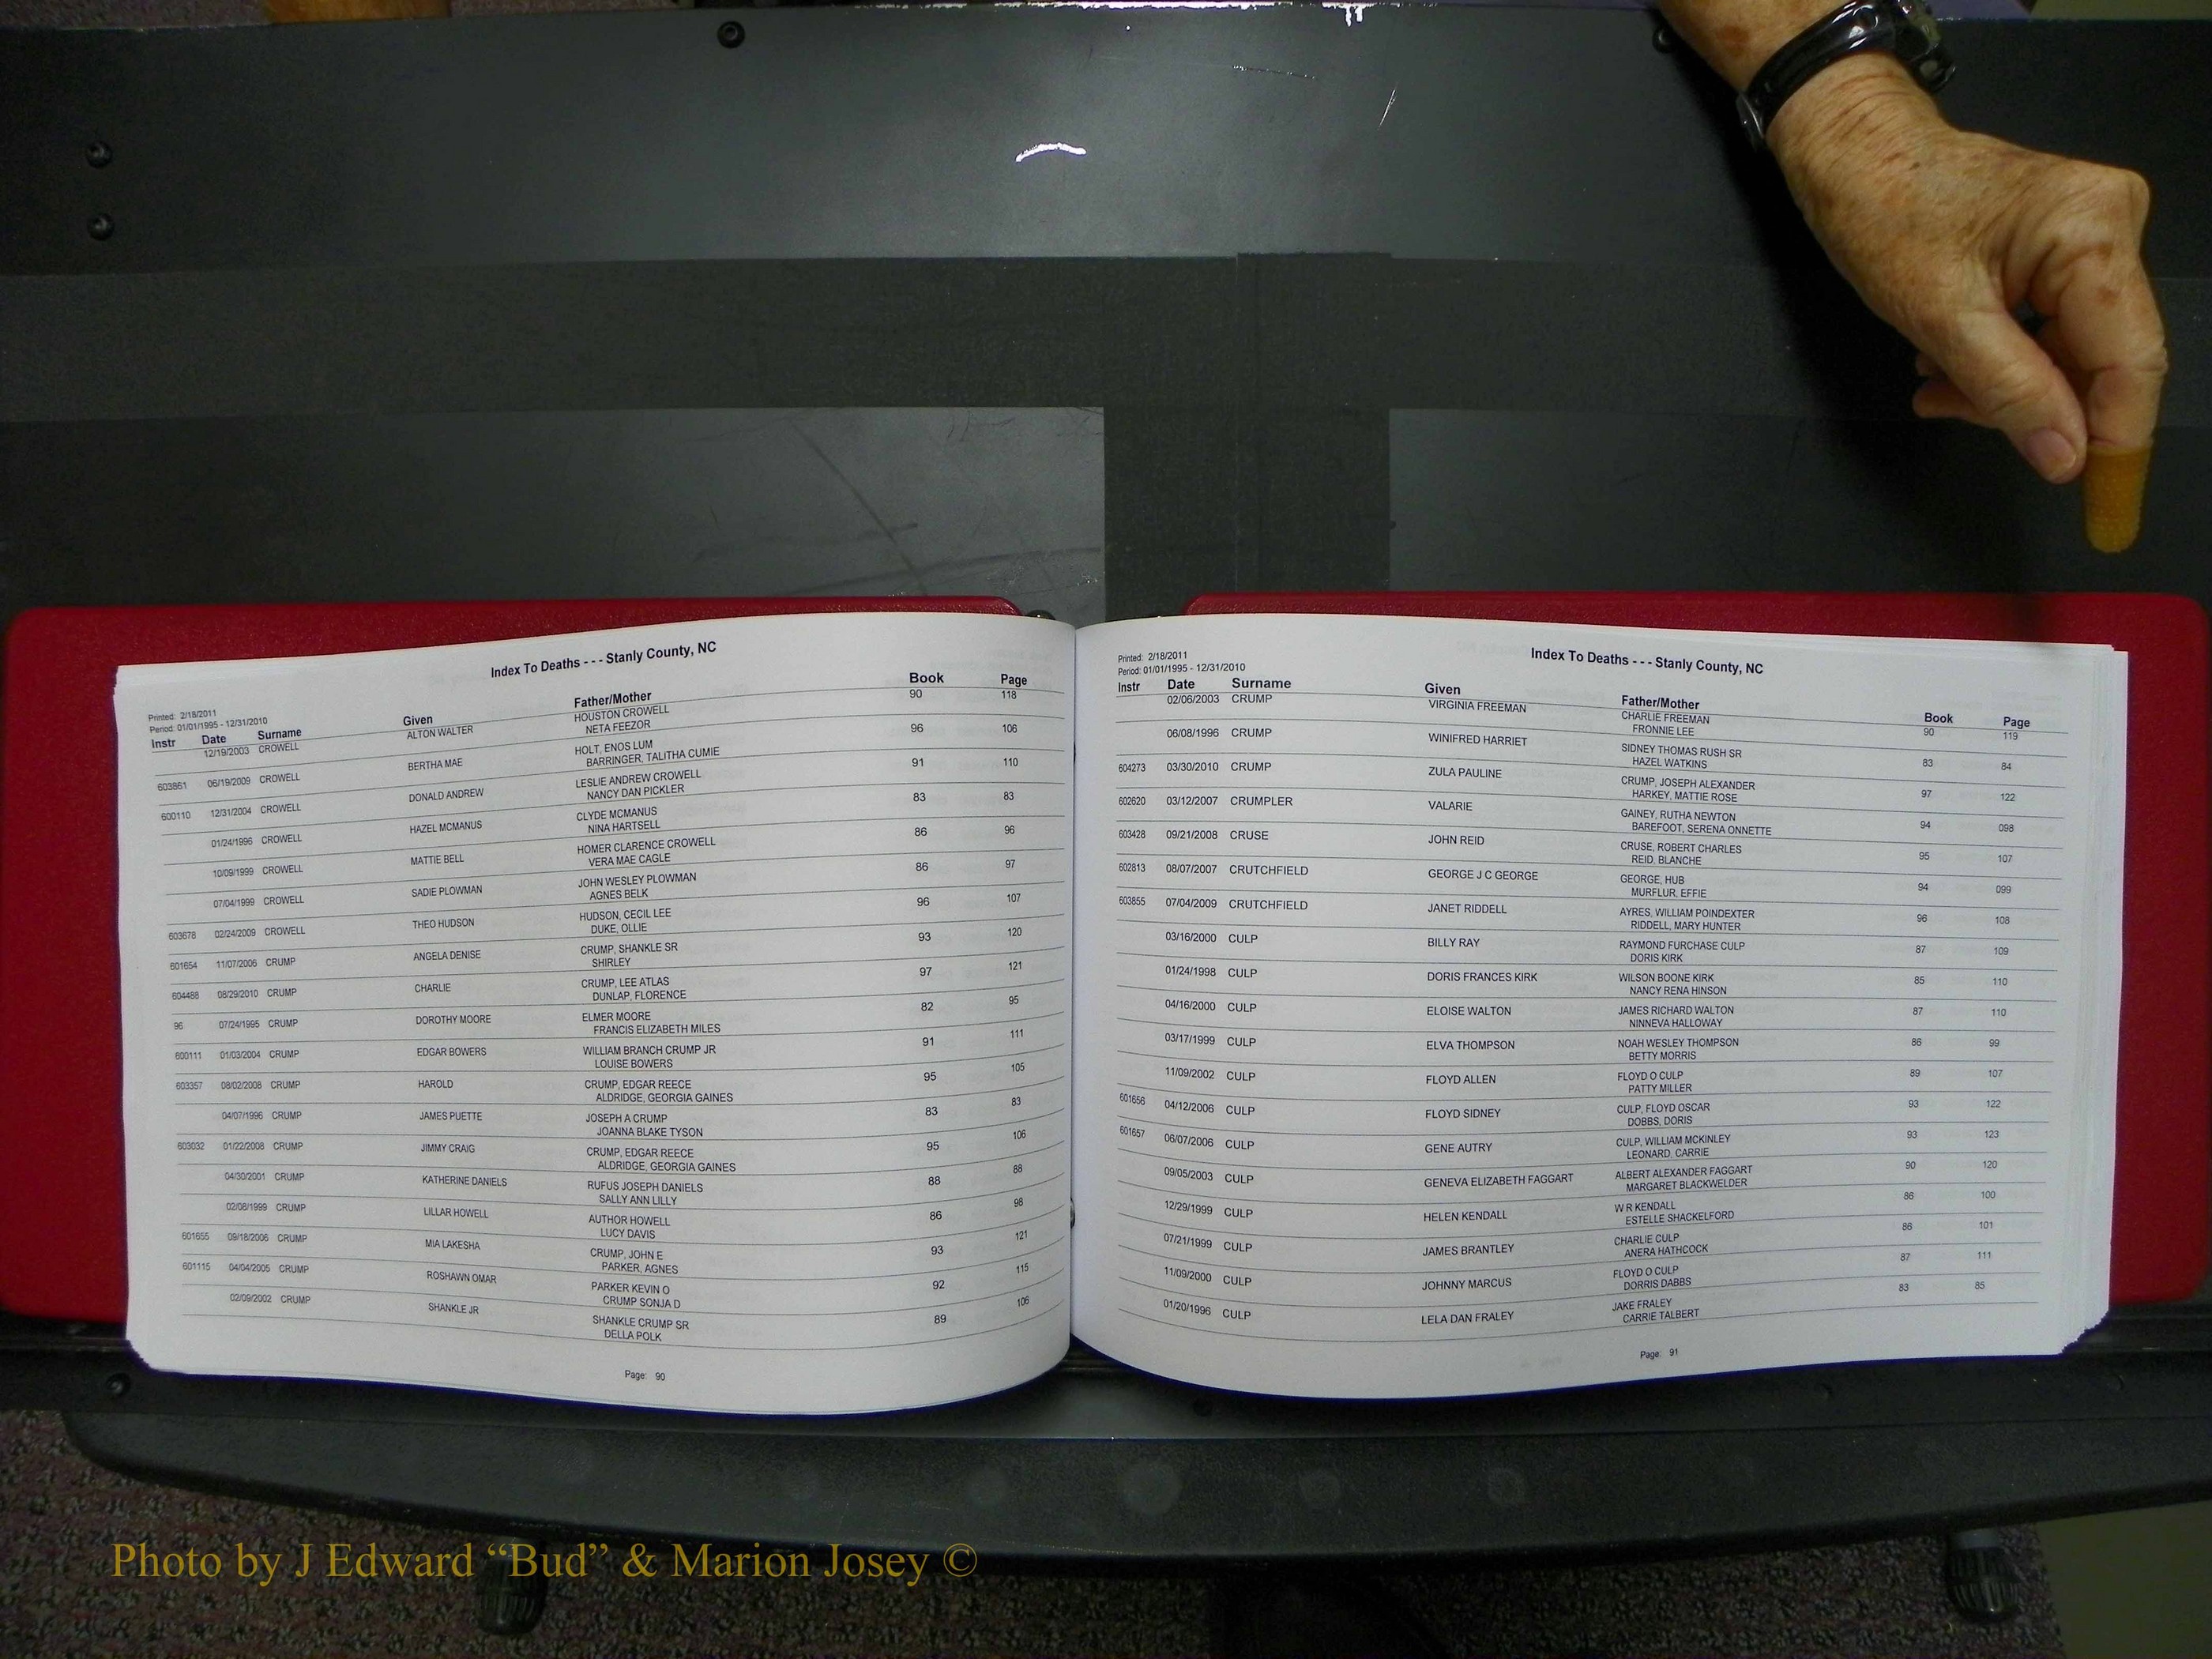 Index To Deaths - - - Stanly County, NC
Printed: 2/18/2011
Period: 01/01/1995 - 12/31/2010
Instr Date Surname Given Father/Mother Book Page
12/19/2003 CROWELL ALTON WALTER HOUSTON CROWELL 90 118
NETA FEEZOR
603861 06/19/2009 CROWELL BERTHA MAE HOLT, ENOS LUM 96 106
BARRINGER, TALITHA CUMIE
600110 12/31/2004 CROWELL DONALD ANDREW LESLIE ANDREW CROWELL 91 110
NANCY DAN PICKLER
01/24/1996 CROWELL HAZEL MCMANUS CLYDE MCMANUS 83 83
NINA HARTSELL
10/09/1999 CROWELL MATTIE BELL HOMER CLARENCE CROWELL 86 96
VERA MAE CAGLE
07/04/1999 CROWELL SADIE PLOWMAN JOHN WESLEY PLOWMAN 86 97
AGNES BELK
603678 02/24/2009 CROWELL THEO HUDSON HUDSON, CECIL LEE 96 107
DUKE, OLLIE
601654 11/07/2006 CRUMP ANGELA DENISE CRUMP, SHANKLE SR 93 120
SHIRLEY
604488 08/29/2010 CRUMP CHARLIE CRUMP, LEE ATLAS 97 121
DUNLAP, FLORENCE
96 07/24/1995 CRUMP DOROTHY MOORE ELMER MOORE 82 95
FRANCIS ELIZABETH MILES
600111 01/03/2004 CRUMP EDGAR BOWERS WILLIAM BRANCH CRUMP JR 91 111
LOUISE BOWERS
603357 08/02/2008 CRUMP HAROLD CRUMP, EDGAR REECE 95 105
ALDRIDGE, GEORGIA GAINES
04/07/1996 CRUMP JAMES PUETTE JOSEPH A CRUMP 83 83
JOANNA BLAKE TYSON
603032 01/22/2008 CRUMP JIMMY CRAIG CRUMP, EDGAR REECE 95 106
ALDRIDGE, GEORGIA GAINES
04/30/2001 CRUMP KATHERINE DANIELS RUFUS JOSEPH DANIELS 88 88
SALLY ANN LILLY
02/08/1999 CRUMP LILLAR HOWELL AUTHOR HOWELL 86 98
LUCY DAVIS
601655 09/18/2006 CRUMP MIA LAKESHA CRUMP, JOHN E 93 121
PARKER, AGNES
601115 04/04/2005 CRUMP ROSHAWN OMAR PARKER KEVIN O 92 115
CRUMP SONJA D
02/09/2002 CRUMP SHANKLE JR SHANKLE CRUMP SR 89 106
DELLA POLK
Page: 90
Index To Deaths - - - Stanly County, NC
Printed: 2/18/2011
Period: 01/01/1995 - 12/31/2010
Instr Date Surname Given Father/Mother Book Page
02/06/2003 CRUMP VIRGINIA FREEMAN CHARLIE FREEMAN 90 119
FRONNIE LEE
06/08/1996 CRUMP WINIFRED HARRIET SIDNEY THOMAS RUSH SR 83 84
HAZEL WATKINS
604273 03/30/2010 CRUMP ZULA PAULINE CRUMP, JOSEPH ALEXANDER 97 122
HARKEY, MATTIE ROSE
602620 03/12/2007 CRUMPLER VALARIE GAINEY, RUTHA NEWTON 94 098
BAREFOOT, SERENA ONNETTE
603428 09/21/2008 CRUSE JOHN REID CRUSE, ROBERT CHARLES 95 107
REID, BLANCHE
602813 08/07/2007 CRUTCHFIELD GEORGE J C GEORGE GEORGE, HUB 94 099
MURFLUR, EFFIE
603855 07/04/2009 CRUTCHFIELD JANET RIDDELL AYRES, WILLIAM POINDEXTER 96 108
RIDDELL, MARY HUNTER
03/16/2000 CULP BILLY RAY RAYMOND FURCHASE CULP 87 109
DORIS KIRK
01/24/1998 CULP DORIS FRANCES KIRK WILSON BOONE KIRK 85 110
NANCY RENA HINSON
04/16/2000 CULP ELOISE WALTON JAMES RICHARD WALTON 87 110
NINNEVA HALLOWAY
03/17/1999 CULP ELVA THOMPSON NOAH WESLEY THOMPSON 86 99
BETTY MORRIS
11/09/2002 CULP FLOYD ALLEN FLOYD O CULP 89 107
PATTY MILLER
601656 04/12/2006 CULP FLOYD SIDNEY CULP, FLOYD OSCAR 93 122
DOBBS, DORIS
601657 06/07/2006 CULP GENE AUTRY CULP, WILLIAM MCKINLEY 93 123
LEONARD, CARRIE
09/05/2003 CULP GENEVA ELIZABETH FAGGART ALBERT ALEXANDER FAGGART 90 120
MARGARET BLACKWELDER
12/29/1999 CULP HELEN KENDALL W R KENDALL 86 100
ESTELLE SHACKELFORD
07/21/1999 CULP JAMES BRANTLEY CHARLIE CULP 86 101
ANERA HATHCOCK
11/09/2000 CULP JOHNNY MARCUS FLOYD O CULP 87 111
DORRIS DABBS
01/20/1996 CULP LELA DAN FRALEY JAKE FRALEY 83 85
CARRIE TALBERT
Page: 91
Photo by J Edward “Bud” & Marion Josey ©